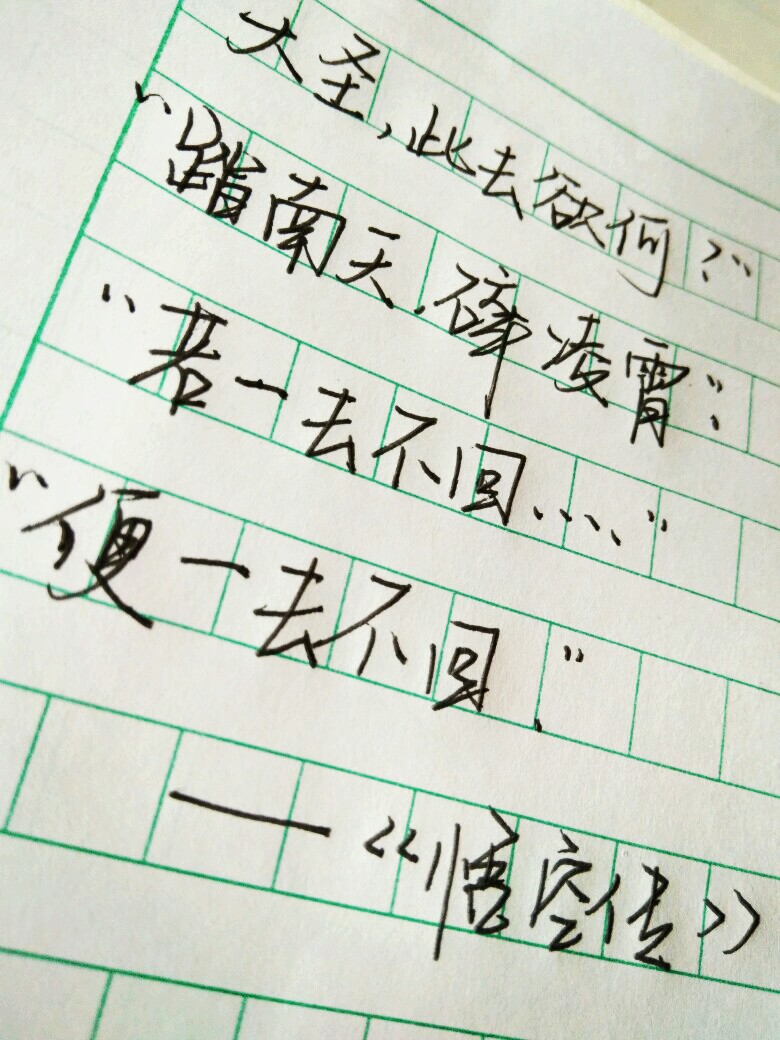 大圣,此去欲何?"
"踏南天,碎凌霄"。
"若一去不回....."
"便一去不回."
——《悟空传》